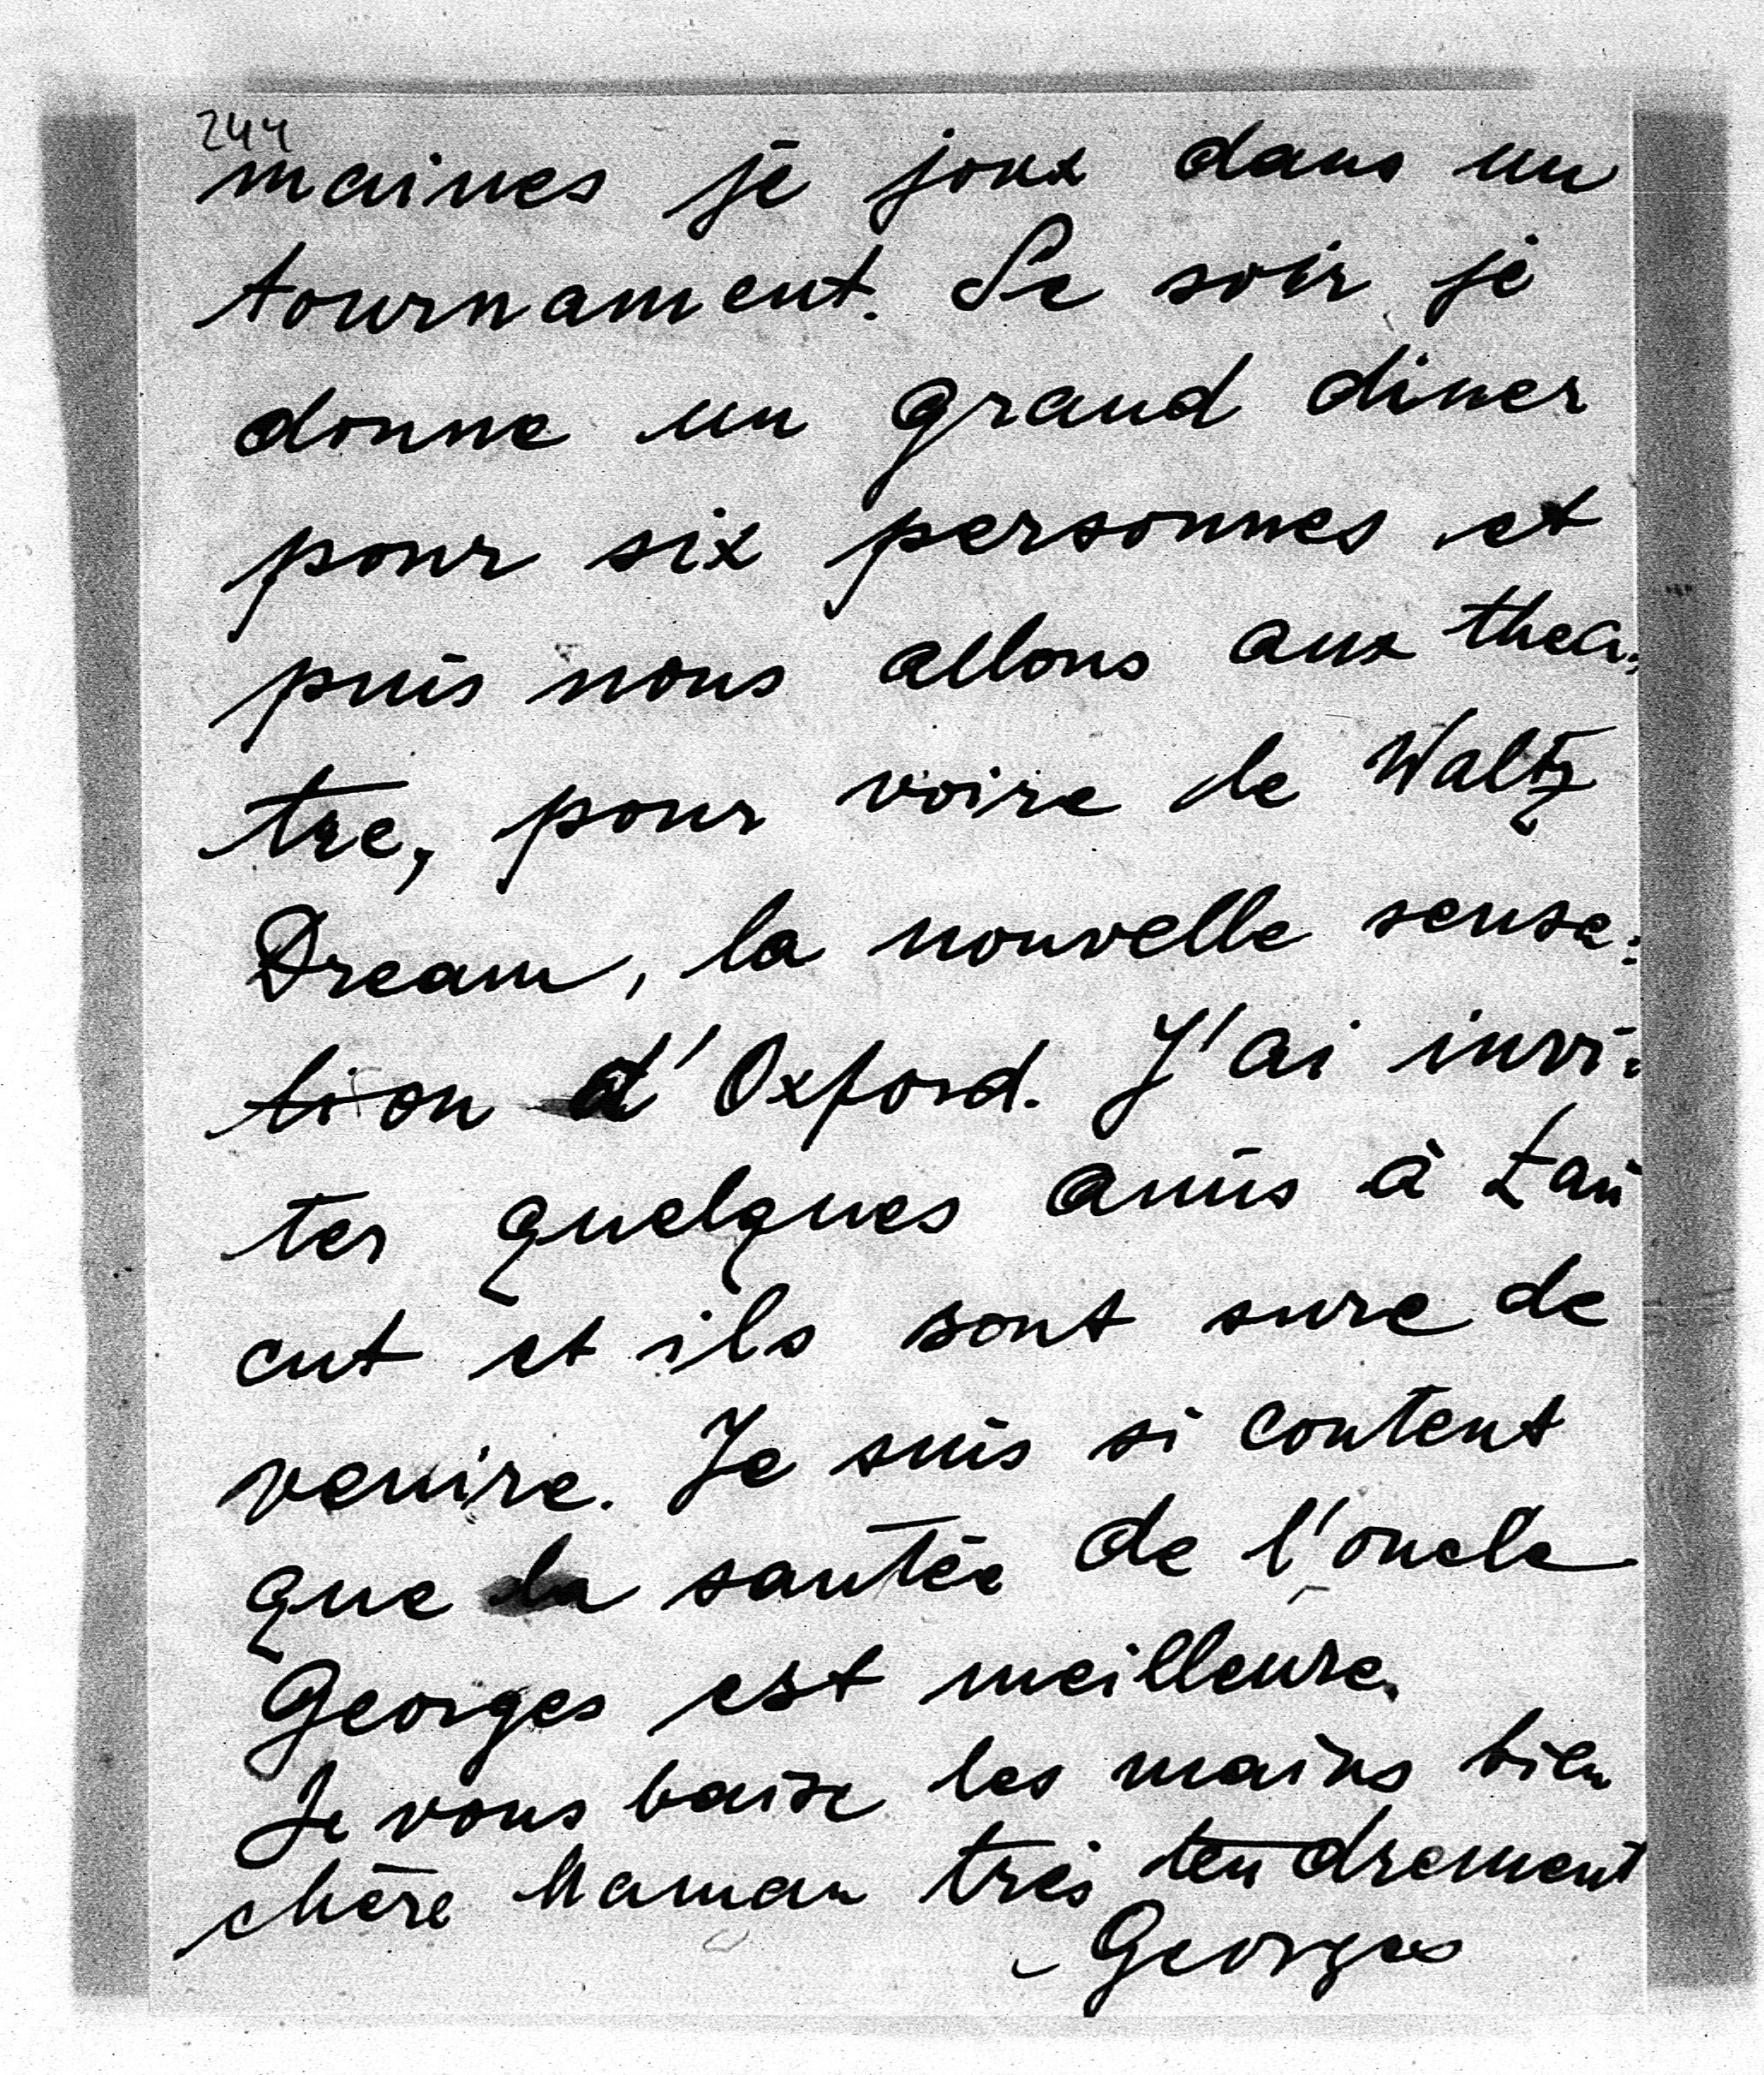 244
maines je joux dans un
tournament. Se soir je
donne un grand diner
pour six personnes et
puis nous allons aux thea-
tre, pour voire le Waltz
Dream, la nouvelle sensa-
tion d'Oxford. J'ai invi-
ter quelques amis à Lan
cut et ils sont sure de
venire. Je suis si content
que la santée de l'oncle
Georges est meilleure.
Je vous baise les mains bien
chère Maman très tendrement
Georges